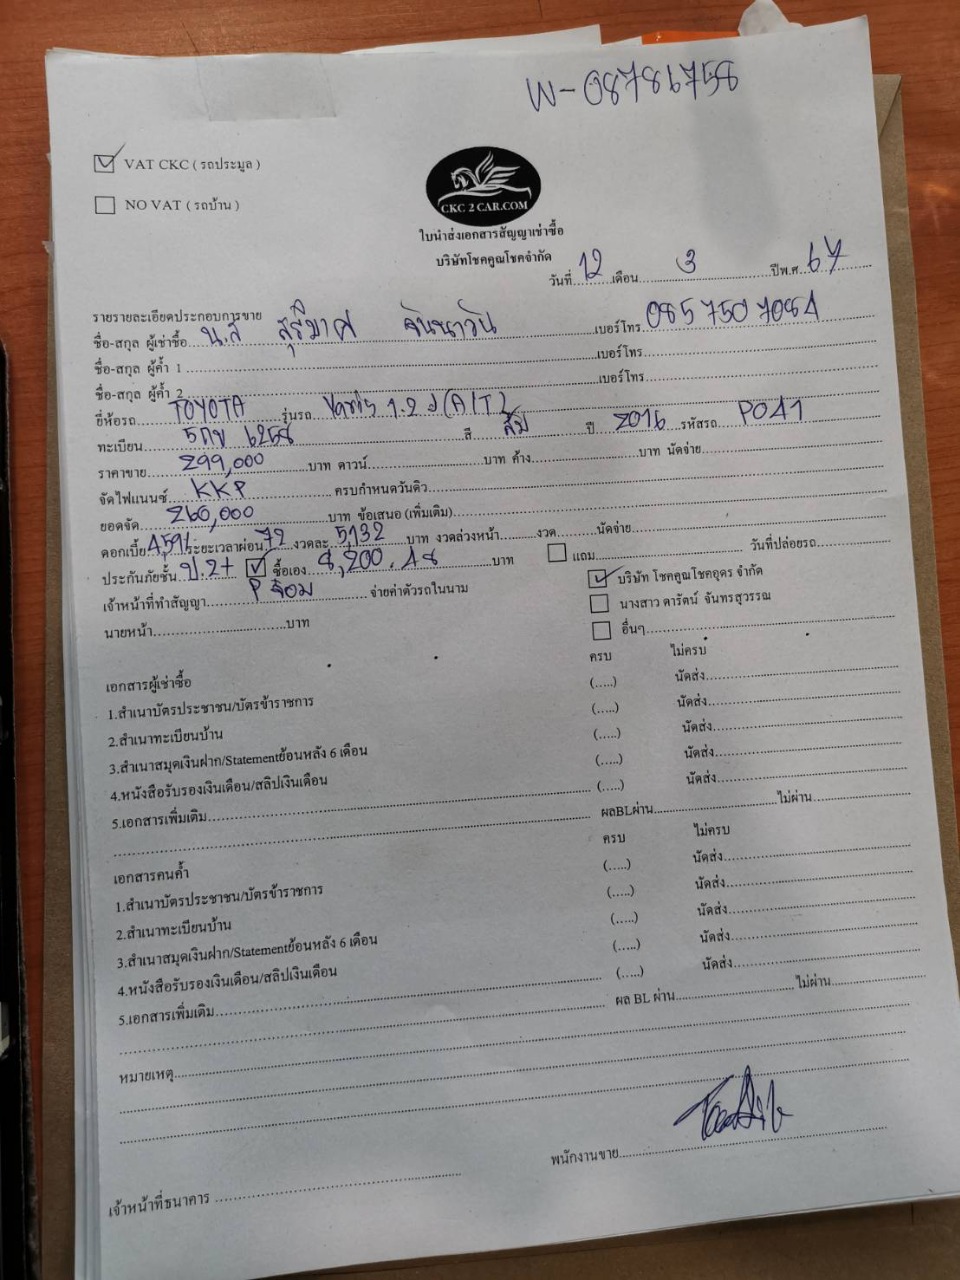 W-08786758
VAT CKC ( รถประมูล )
NO VAT ( รถบ้าน )
CKC 2 CAR.COM
ใบนำส่งเอกสารสัญญาเช่าซื้อ
บริษัทโชคคูณโชคจำกัด
วันที่ 12 เดือน 3 ปีพ.ศ. 67
รายรายละเอียดประกอบการขาย
ชื่อ-สกุล ผู้เช่าซื้อ น.ส เบอร์โทร 085 750 7084
ชื่อ-สกุล ผู้ค้ำ 1 เบอร์โทร
ชื่อ-สกุล ผู้ค้ำ 2 เบอร์โทร
ยี่ห้อรถ TOYOTA รุ่นรถ Yaris 1.2 J (A/T)
ทะเบียน สี ส้ม ปี 2016 รหัสรถ PO41
ราคาขาย 299,000 บาท ดาวน์ บาท ค้าง บาท นัดจ่าย
จัดไฟแนนซ์ KKP ครบกำหนดวันดิว
ยอดจัด 260,000 บาท ข้อเสนอ (เพิ่มเติม)
ดอกเบี้ย ระยะเวลาผ่อน 72 งวดละ 5132 บาท งวดล่วงหน้า งวด นัดจ่าย
ประกันภัยชั้น ป.2+ ซื้อเอง 8,200.48 บาท แถม วันที่ปล่อยรถ
เจ้าหน้าที่ทำสัญญา P จ๋อม จ่ายค่าตัวรถในนาม บริษัท โชคคูณโชคอุดร จำกัด
นางสาว ดารัตน์ จันทรสุวรรณ
นายหน้า บาท อื่นๆ
เอกสารผู้เช่าซื้อ ครบ ไม่ครบ
1.สำเนาบัตรประชาชน/บัตรข้าราชการ (.....) นัดส่ง
2.สำเนาทะเบียนบ้าน (.....) นัดส่ง
3.สำเนาสมุดเงินฝาก/Statementย้อนหลัง 6 เดือน (.....) นัดส่ง
4.หนังสือรับรองเงินเดือน/สลิปเงินเดือน (.....) นัดส่ง
5.เอกสารเพิ่มเติม (.....) นัดส่ง
ผลBLผ่าน ไม่ผ่าน
เอกสารคนค้ำ ครบ ไม่ครบ
1.สำเนาบัตรประชาชน/บัตรข้าราชการ (.....) นัดส่ง
2.สำเนาทะเบียนบ้าน (.....) นัดส่ง
3.สำเนาสมุดเงินฝาก/Statementย้อนหลัง 6 เดือน (.....) นัดส่ง
4.หนังสือรับรองเงินเดือน/สลิปเงินเดือน (.....) นัดส่ง
5.เอกสารเพิ่มเติม (.....) นัดส่ง
ผล BL ผ่าน ไม่ผ่าน
หมายเหตุ
พนักงานขาย
เจ้าหน้าที่ธนาคาร